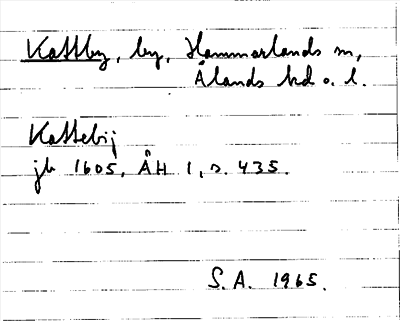 Kattby, by, Hammarlands sn,
Ålands hd o. l.
Kattebij
jb 1605, ÅH 1, s. 435.
S. A. 1965.